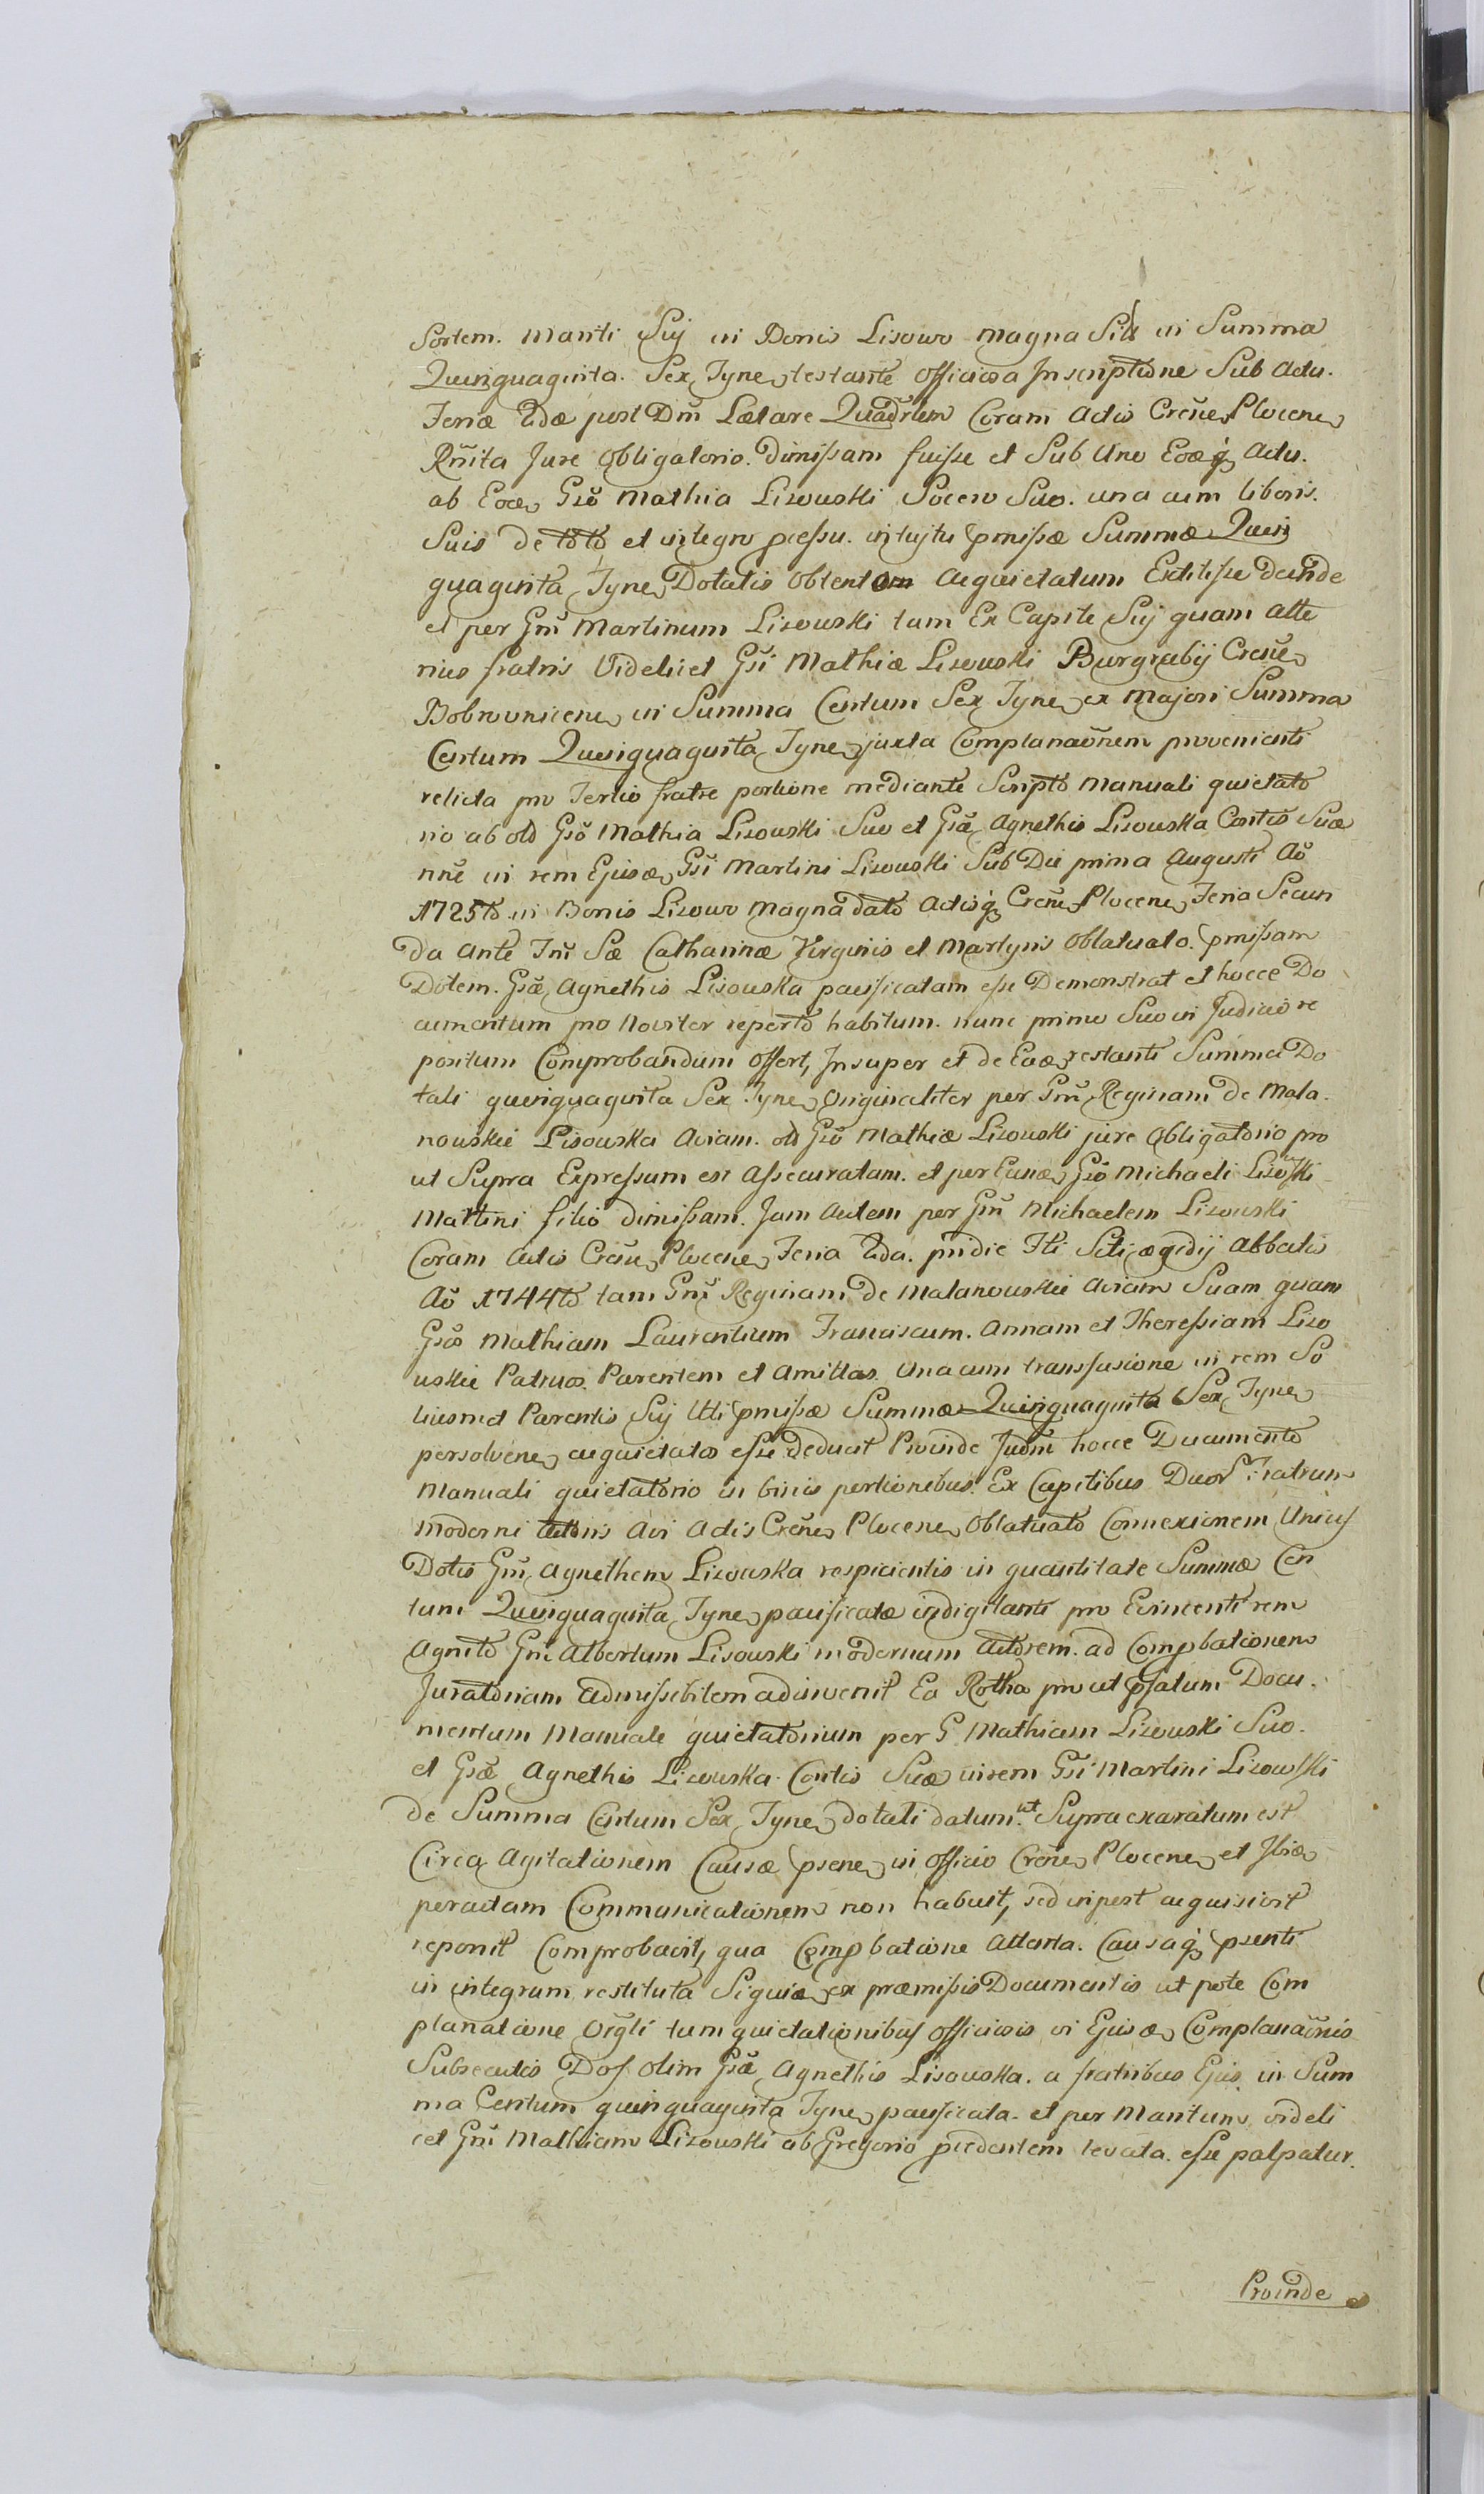 Sortem. Mariti Sui in Bonis Lisowo Magna Sita in Summa
Quinquaginta. Sex Tyne, testante Officiosa Inscriptione Sub Actu.
Feriæ 2dæ post Dm̃ Lætare Quadr̃lem Coram Actis Crẽne, Plocen,
Rñita Jure Obligatorio. dimissam fuisse et Sub Uno Eoq́ Actu.
ab Eod, Gšo Mathia Lisowski Socero Suo. una cum liberis.
Suis de toto et integro pcessu. intuitu pmissæ Summæ Quin
quaginta Tyne, Dotalis obtentam acquietatum Extitisse deinde
et per Gm̃ Martinum Lisowski tam Ex Capite Sui quam alte
rius fratris Videlicet Gši Mathiæ Lisowski Burgrabij Crẽne,
Bobrownicen, in Summa Centum Sex Tyne, ex Majori Summa
Centum Quinquaginta Tyne, juxta Complanaõnem provenienti
relicta pro Tertio fratre portione mediante Scripto Manuali quietato
rio ab old Gšo Mathia Lisowski Suo et Gšæ Agnethis Lisowska Contis Suæ
nñe in rem Ejusd, Gši Martini Lisowski Sub Die prima Augusti Aõ
1725to in Bonis Lisowo Magna dato Actisq́ Crẽne, Plocen, Feria Secun
da Ante Fm̃ Sæ Catharinæ Virginis et Martyris Oblatuato. pmissam
Dotem. Gšæ Agnethis Lisowska pacificatam esse Demonstrat et hocce Do
cumentum pro Noviter reperto habitum. nunc primo Suo in Judicio re
positum Comprobandum offert, Insuper et de Ead, restanti Summa Do
tali quinquaginta Sex Tyne, Originaliter per Gm̃ Reginam de Mala.
nowskie Lisowska Aviam. old Gšo Mathiæ Lisowski jure Obligatorio pro
ut Supra Expressum est Assecuratam. et per Eund, Gšo Michaeli Lisowski
Martini filio dimissam. Jam Autem per Gm̃ Michaelem Lisowski
Coram Actis Crẽne, Plocen, Feria 2da. pridie Fti Scti Ægidij Abbatis
Aõ 1744to tam Gm̃ Reginam de Malanowskie Aviam Suam quam
Gšos Mathiam Laurentium Franciscum. Annam et Theressiam Liso
wskie Patruos. Parentem et Amittas. Una cum transfusione in rem So
liusmet Parentis Sui Uti pmissæ Summæ Quinquaginta Sex Tyne,
persolven, acquietatos esse deducit Proinde Judm̃ hocce Documento
Manuali quietatorio in binis portionibus. Ex Capitibus Duor Fratrum
Moderni Actoris Avi Actis Crẽne, Plocen, Oblatuato Connexionem Unius
Dotis Gm̃ Agnethem Lisowska respicientis in quantitate Summæ Cen
tum Quinquaginta Tyne, pacificatæ indigitanti pro Evincenti rem
Agnito Gm̃ Albertum Lisowski modernum Actorem. ad Compbationem
Juratoriam admissibilem adinvenit Ea Rotha pro ut psatum Docu.
mentum Manuale quietatorium per G Mathiam Lisowski Suo.
et Gšæ Agnethis Lisowska Contis Suæ in rem Gši Martini Lisowski
de Summa Centum Sex Tyne, dotali datum. ut Supra exaratum est
Circa Agitationem Causæ psen, in Officio Crẽne, Plocen, et Ibid,
peractam Communicationem non habuit, sed in post acquisivit
reponit Comprobavit, qua Compbatione Attenta. Causaq́ psenti
in integrum restituta Siquid, ex præmissis Documentis ut pote Com
planatione Orĝli tum quietationibus officiosis vi Ejusd, Complanaõnis
Subsecutis Dos olim Gšæ Agnethis Lisowska. a fratribus Ejus. in Sum
ma Centum quinquaginta Tyne, pacificata. et per Maritum videli
cet Gm̃ Mathiam Lisowski ab Gregorio pcedentem levata. esse palpatur.
Proinde